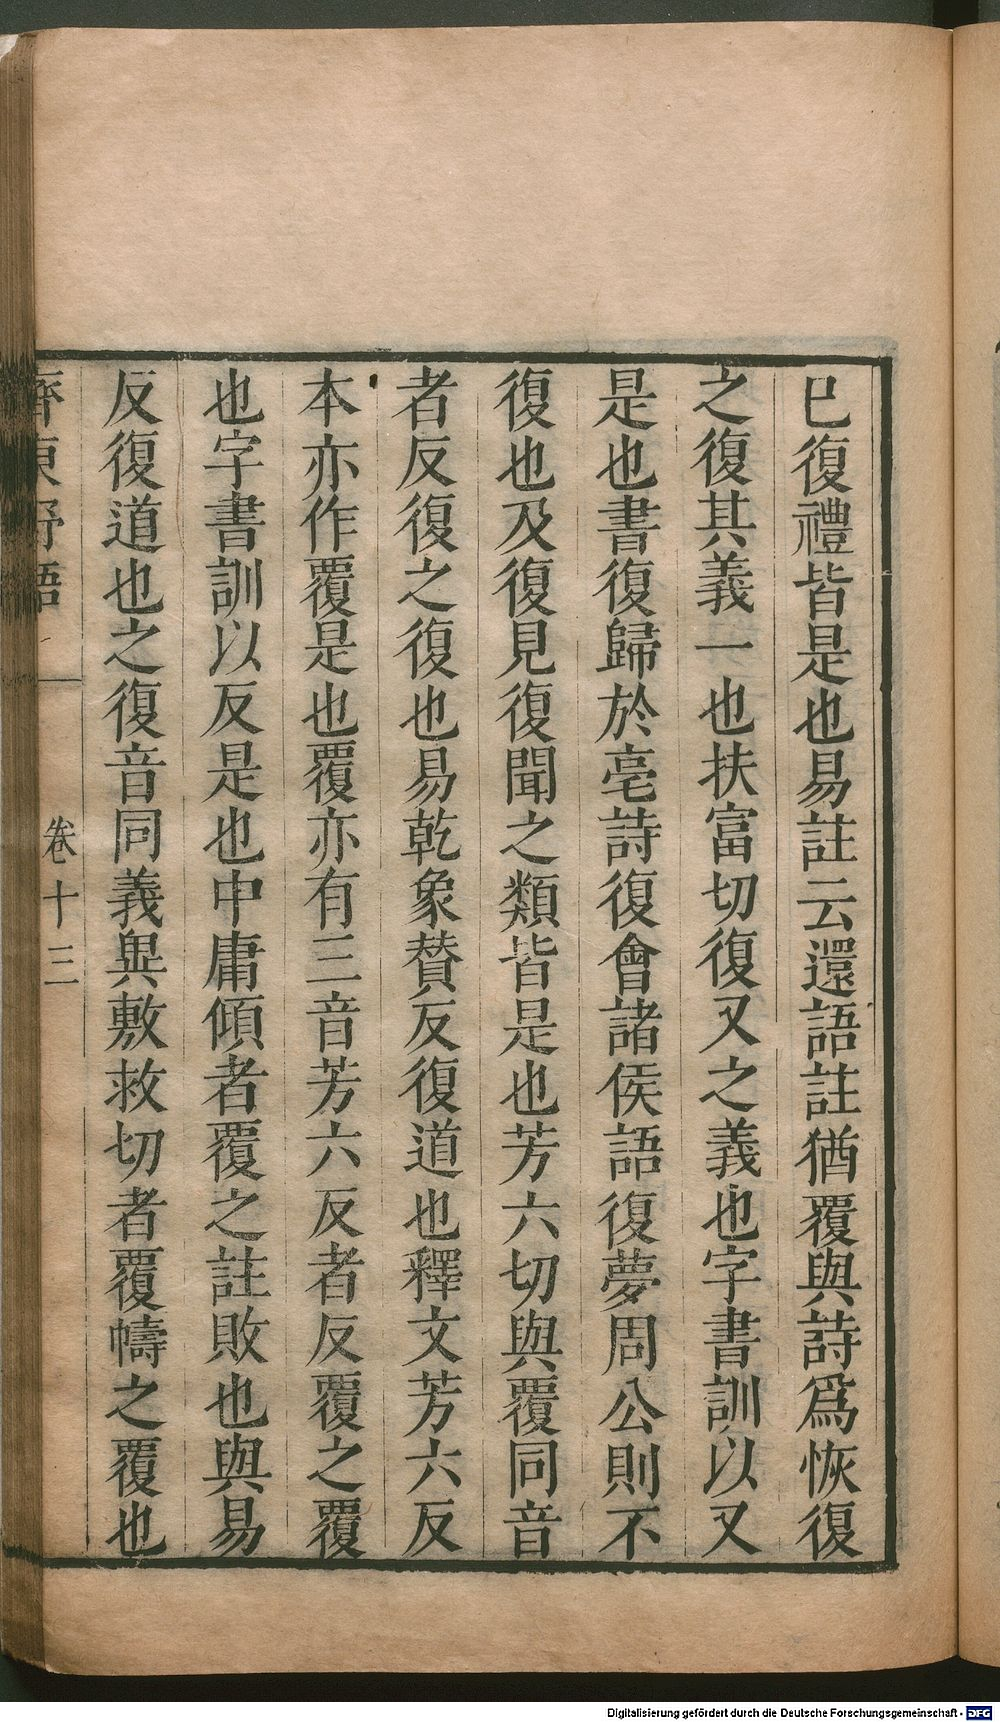 已復禮皆是也易註云還語註猶覆與詩爲恢復
之復其義一也扶富切復又之義也字書訓以又
是也書復歸於亳詩復會諸侯語復夢周公則不
復也及復見復聞之類皆是也芳六切與覆同音
者反復之復也易乾象賛反復道也釋文芳六反
本亦作覆是也覆亦有三音芳六反者反覆之覆
也字書訓以反是也中庸傾者覆之註敗也與易
反復道也之復音同義異敷救切者覆幬之覆也
齊東野語
卷十三
Digitalisierung gefördert durch die Deutsche Forschungsgemeinschaft - DFG